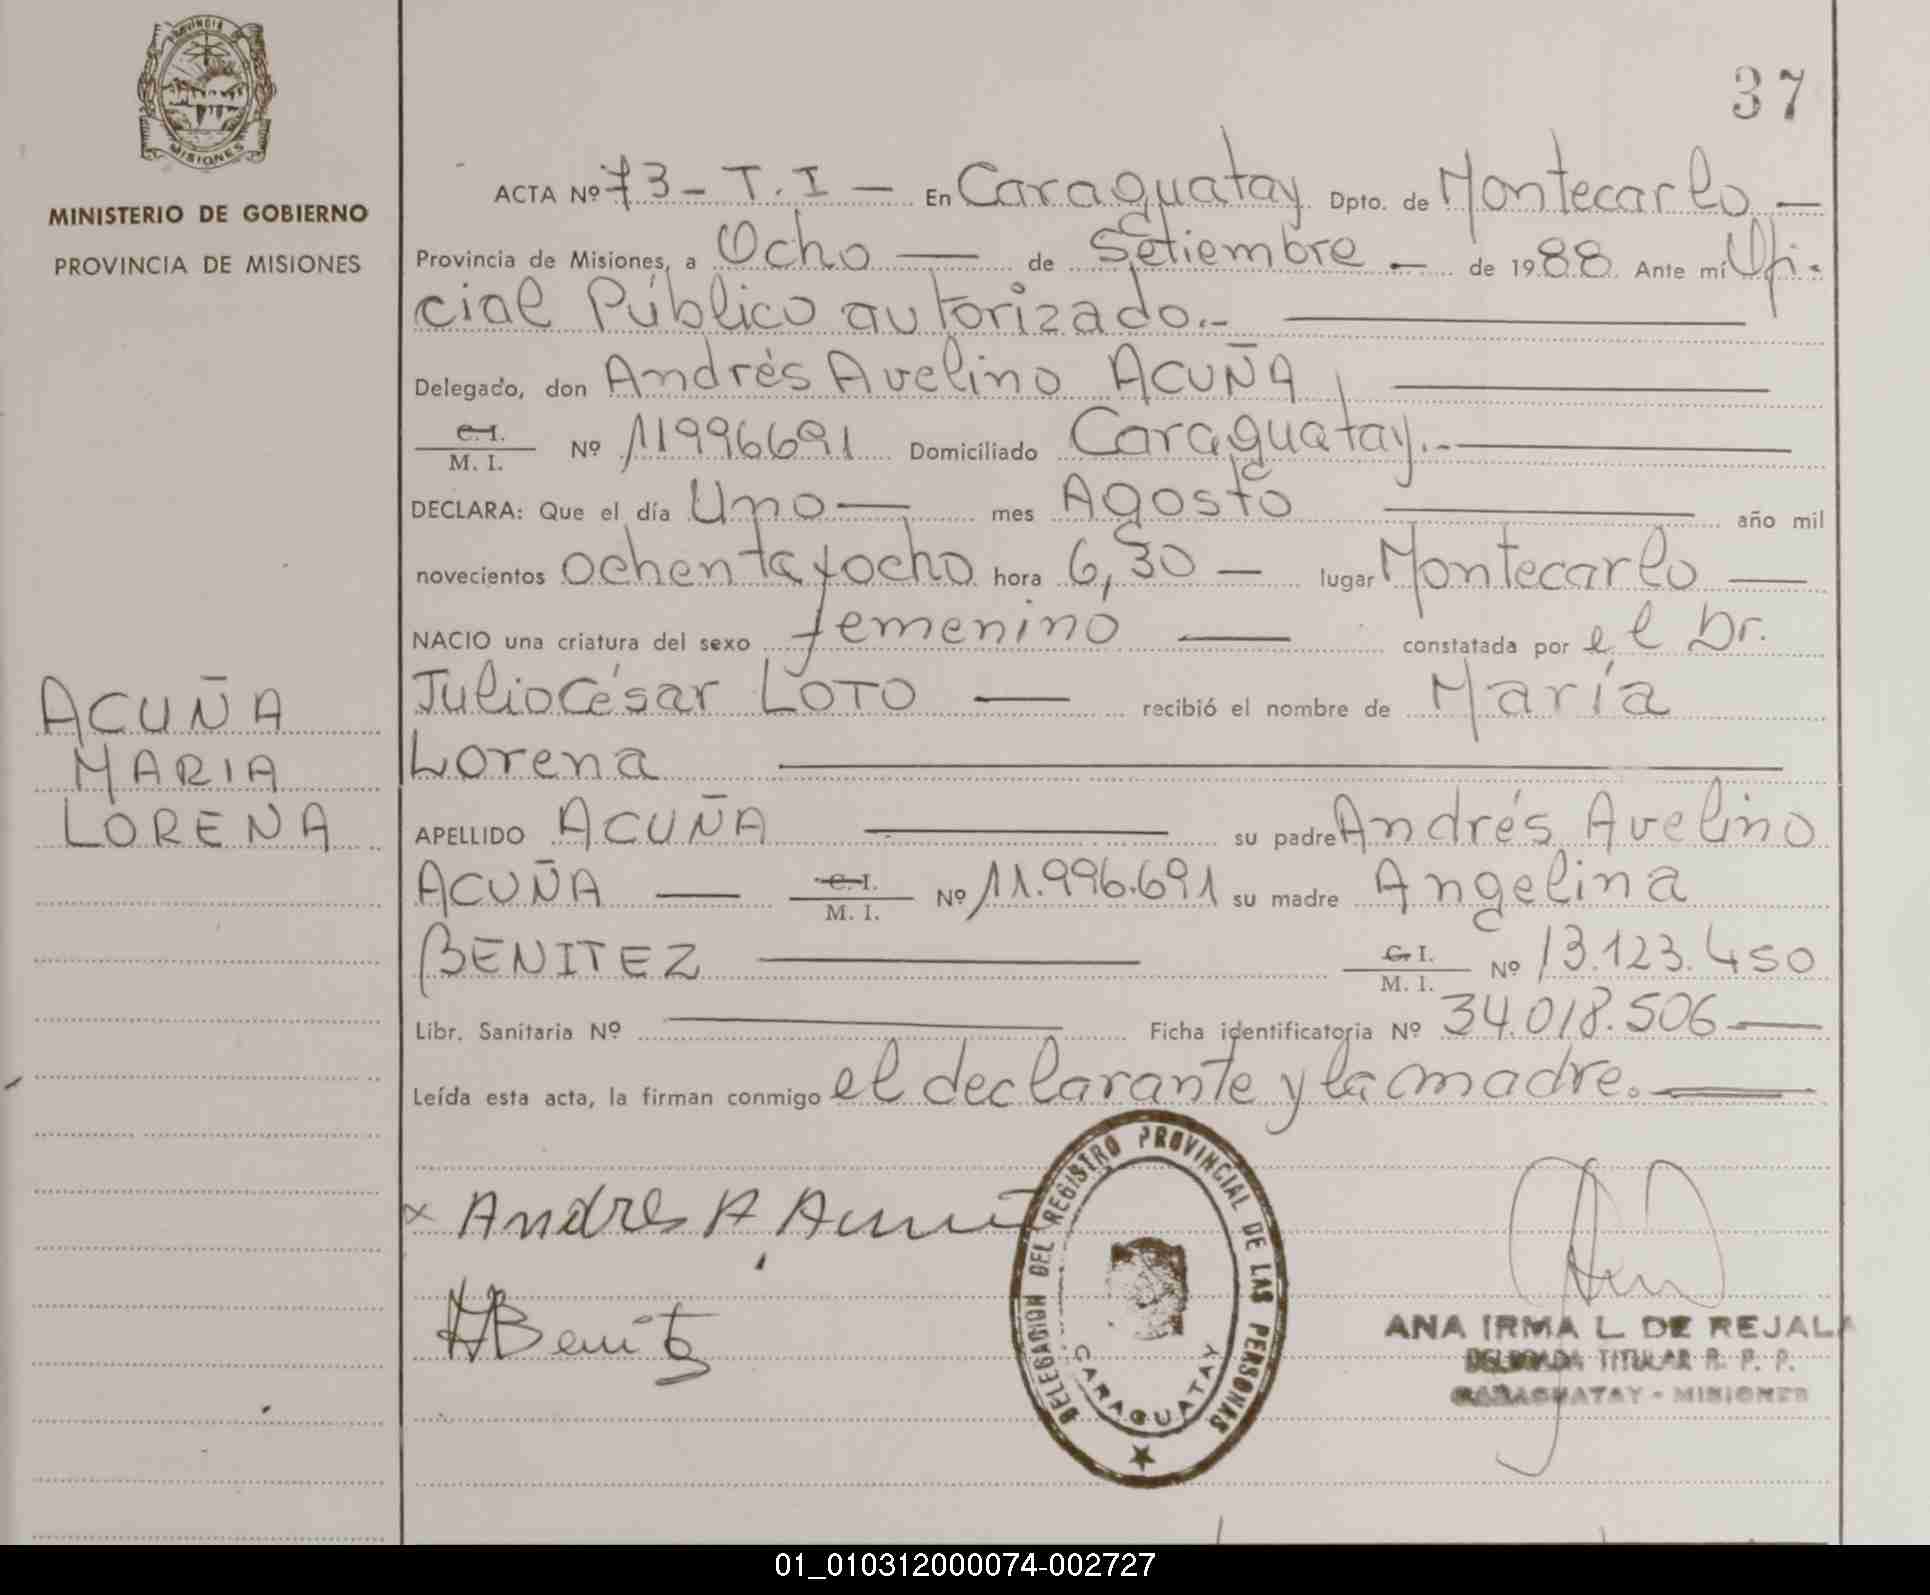 PROVINCIA
MISIONES
MINISTERIO DE GOBIERNO
PROVINCIA DE MISIONES
ACUÑA
MARIA
LORENA
37
ACTA Nº 73 - T. I - En Caraguatay Dpto. de Montecarlo -
Provincia de Misiones, a Ocho - de Setiembre - de 1988 Ante mí Ofi-
cial Público autorizado.-
Delegado, don Andrés Avelino ACUÑA
C. I.
M. I. Nº 11996691 Domiciliado Caraguatay.-
DECLARA: Que el día Uno - mes Agosto año mil
novecientos ochenta y ocho hora 6,30 - lugar Montecarlo -
NACIO una criatura del sexo femenino - constatada por el Dr.
Julio César LOTO - recibió el nombre de María
Lorena
APELLIDO ACUÑA su padre Andrés Avelino
ACUÑA - C. I.
M. I. Nº 11.996.691 su madre Angelina
BENITEZ C. I.
M. I. Nº 13.123.450
Libr. Sanitaria Nº Ficha identificatoria Nº 34.018.506 -
Leída esta acta, la firman conmigo el declarante y la madre.
x Andres A. Acuña
ABenitez
DELEGACION DEL REGISTRO PROVINCIAL DE LAS PERSONAS
CARAGUATAY
ANA IRMA L. DE REJALA
DELEGADA TITULAR R. P. P.
CARAGUATAY - MISIONES
01_010312000074-002727